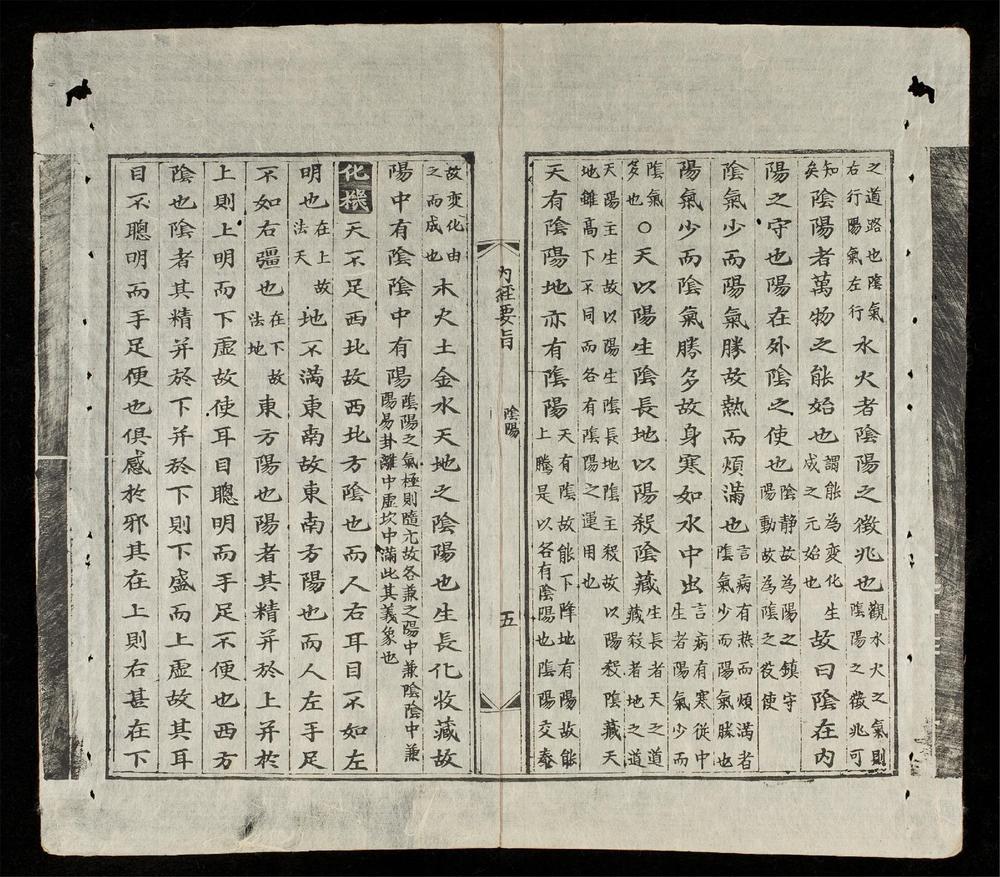 之道路也陰氣右行陽氣左行水火者陰陽之徵兆也觀水火之氣則陰陽之徵兆可
知矣陰陽者萬物之能始也謂能為變化生成之元始也故曰陰在內
陽之守也陽在外陰之使也陰静故為陽之鎮守陽動故為陰之役使
陰氣少而陽氣勝故熱而煩滿也言病有热而煩滿者陰氣少而陽氣勝也
陽氣少而陰氣勝多故身寒如水中出言病有寒從中生者陽氣少而
陰氣多也〇天以陽生陰長地以陽殺陰藏生長者天之道藏殺者地之道
天陽主生故以陽生陰長地陰主殺故以陽殺陰藏天地雖高下不同而各有陰陽之運用也
天有陰陽地亦有陰陽天有陰故能下降地有陽故能上騰是以各有陰陽也陰陽交泰
内經要旨 陰陽 五
故變化由之而成也木火土金水天地之陰陽也生長化收藏故
陽中有陰陰中有陽陰陽之氣極則隨亢故各兼之陽中兼陰陰中兼陽易卦離中虛坎中滿此其義象也
化機天不足西北故西北方陰也而人右耳目不如左
明也在上故法天地不滿東南故東南方陽也而人左手足
不如右彊也在下故法地東方陽也陽者其精并於上并於
上則上明而下虛故使耳目聰明而手足不便也西方
陰也陰者其精并於下并於下則下盛而上虛故其耳
目不聰明而手足便也俱感於邪其在上則右甚在下